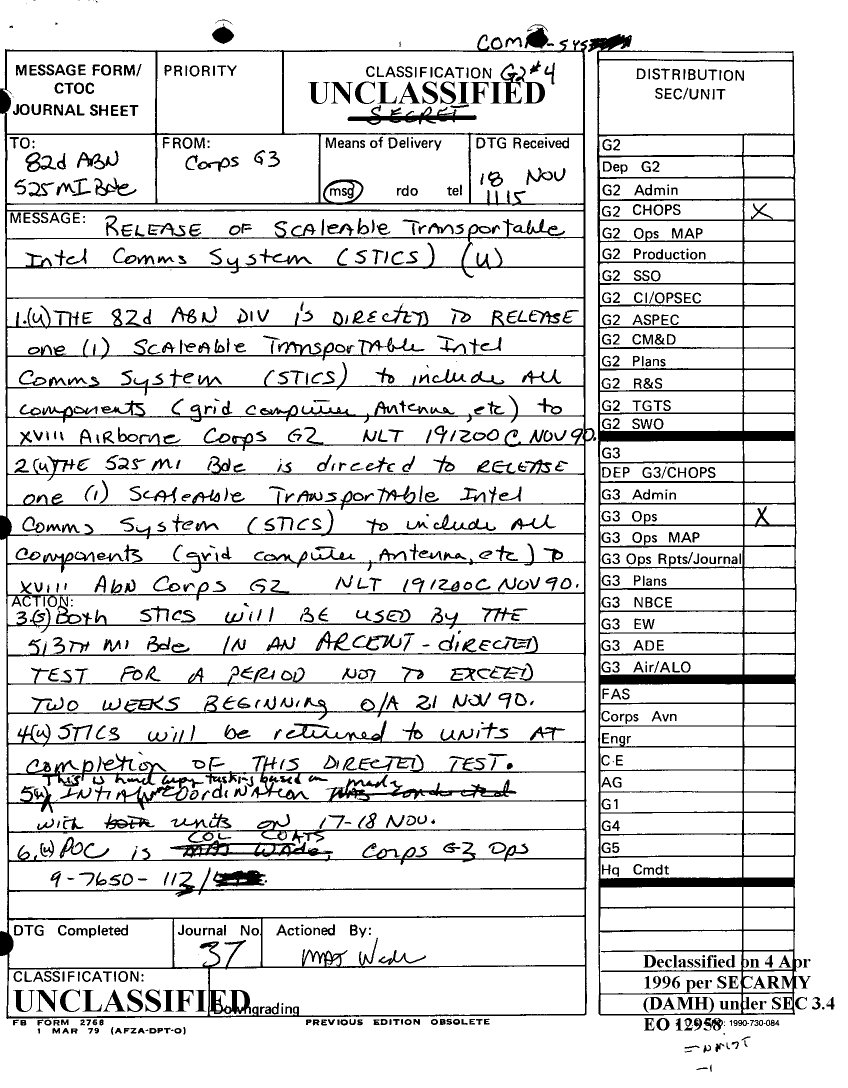 COMM-SYS
MESSAGE FORM/
CTOC
JOURNAL SHEET
PRIORITY
CLASSIFICATION G2#4
UNCLASSIFIED
SECRET
DISTRIBUTION
SEC/UNIT
TO:
82d ABN
525 MI Bde
FROM:
Corps G3
Means of Delivery
msg rdo tel
DTG Received
18 NOV
1115
MESSAGE: RELEASE OF SCALEABLE TRANSPORTABLE
INTEL COMMS SYSTEM (STICS) (U)
1.(U) THE 82d ABN DIV IS DIRECTED TO RELEASE
one (1) SCALEABLE TRANSPORTABLE INTEL
COMMS SYSTEM (STICS) to include All
components (grid computer, Antenna, etc) to
XVIII AIRBORNE Corps G2 NLT 191200C NOV 90.
2(U) THE 525 MI Bde is directed to RELEASE
one (1) SCALEABLE TRANSPORTABLE INTEL
COMMS SYSTEM (STICS) to include All
components (grid computer, Antenna, etc) to
XVIII Abn Corps G2 NLT 191200C NOV 90.
ACTION:
3.(S) Both STICS will BE USED BY THE
513TH MI Bde IN AN ARCENT-directED
TEST FOR A PERIOD NOT TO EXCEED
TWO WEEKS BEGINNING O/A 21 NOV 90.
4(U) STICS will be returned to UNITS AT
completion OF THIS DIRECTED TEST.
This is hard copy tasking based on made
5(U) INTIAL COORDINATION was conducted
with both units on 17-18 NOV.
COL COATS
6.(U) POC is MAJ Wade, Corps G3 Ops
9-7650-112/
DTG Completed
Journal No.
37
Actioned By:
MAJ Wade
CLASSIFICATION:
UNCLASSIFIED
Downgrading
FB FORM 2768
1 MAR 79 (AFZA-DPT-O)
PREVIOUS EDITION OBSOLETE
G2
Dep G2
G2 Admin
G2 CHOPS X
G2 Ops MAP
G2 Production
G2 SSO
G2 CI/OPSEC
G2 ASPEC
G2 CM&D
G2 Plans
G2 R&S
G2 TGTS
G2 SWO
G3
DEP G3/CHOPS
G3 Admin
G3 Ops X
G3 Ops MAP
G3 Ops Rpts/Journal
G3 Plans
G3 NBCE
G3 EW
G3 ADE
G3 Air/ALO
FAS
Corps Avn
Engr
C-E
AG
G1
G4
G5
Hq Cmdt
Declassified on 4 Apr
1996 per SECARMY
(DAMH) under SEC 3.4
EO 12958
1990-730-084